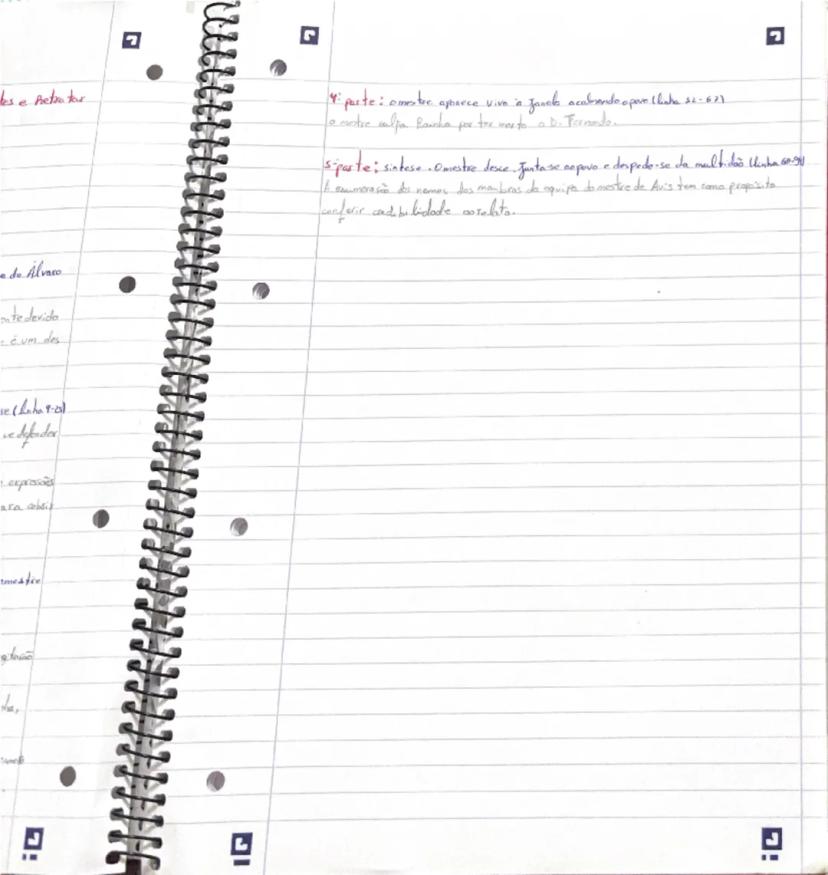 tes e Retratar
e do Álvaro
nte devido
e é um dos
se (linha 9-23)
ve defender
expressões
ara
mestre
4ª parte: o mestre aparece vivo à janela acalmando o povo (linha 52-67)
o mestre culpa Rainha por ter morto o D. Fernando.
5ª parte: síntese. O mestre desce, Junta-se ao povo e despede-se da multidão (linha 68-91)
A enumeração dos nomes dos membros da equipa do mestre de Avis tem como propósito
conferir credibilidade ao relato.